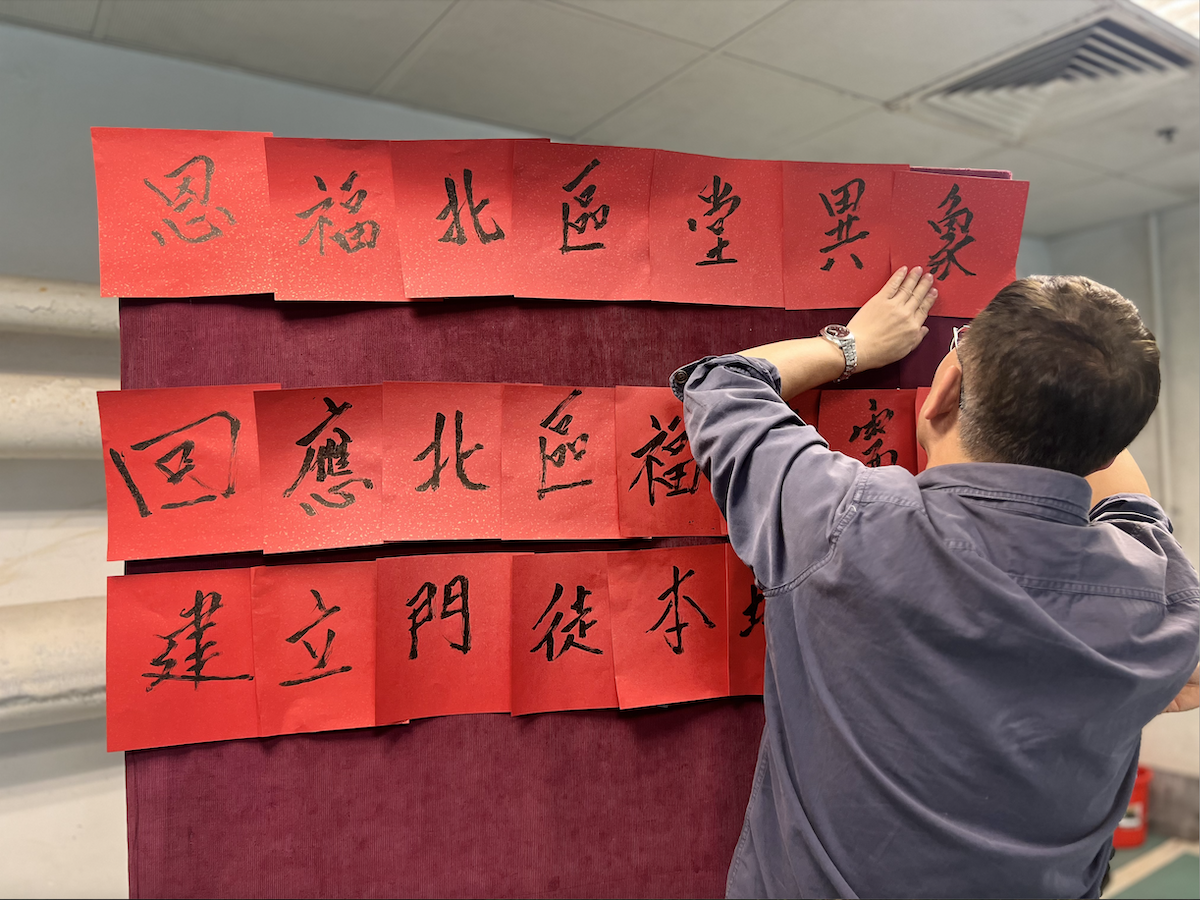 恩福北區堂異象
回應北區福需
建立門徒本